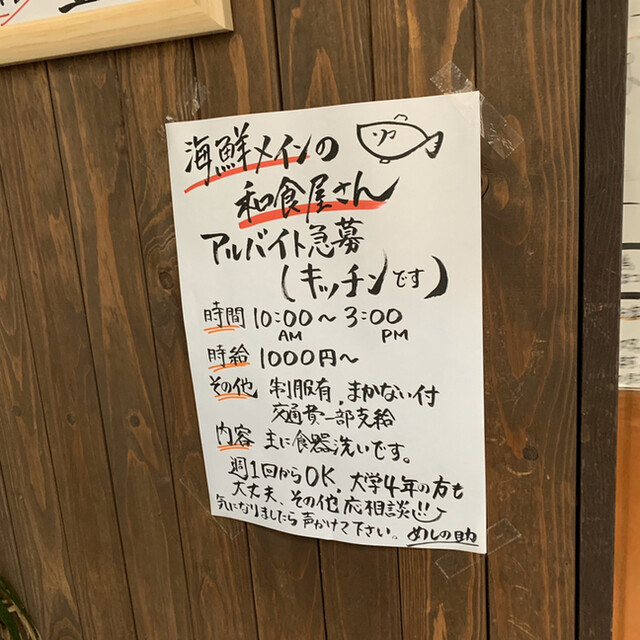 海鮮メインの
和食屋さん
アルバイト急募
(キッチンです)
時間 10:00～3:00
AM PM
時給 1000円～
その他 制服有、まかない付
交通費一部支給
内容 主に食器洗いです。
週1回からOK、大学4年の方も
大丈夫、その他応相談!!
気になりましたら声かけて下さい。めしの助